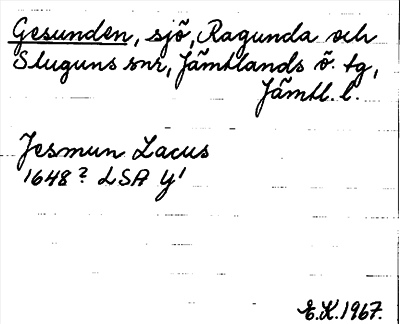 Gesunden, sjö, Ragunda och
Stuguns snr, Jämtlands ö. tg,
Jämtl. l.
Jesmun Lacus
1648? LSA Y'
E.K. 1967.